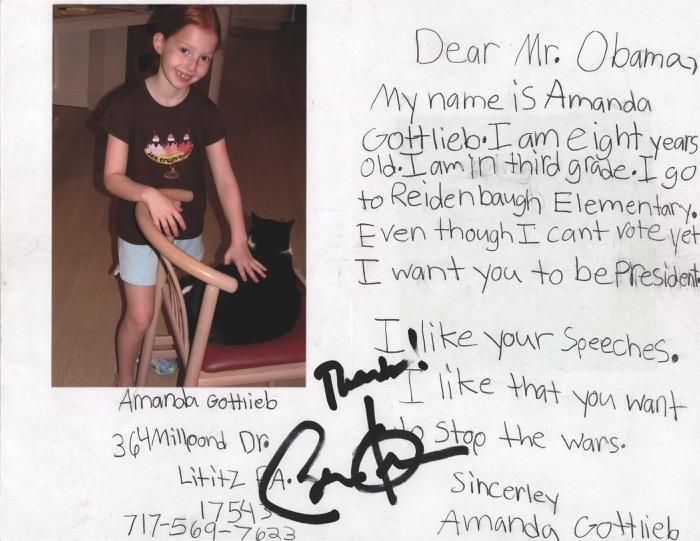 Dear Mr. Obama,
My name is Amanda
Gottlieb. I am eight years
old. I am in third grade. I go
to Reidenbaugh Elementary.
Even though I cant vote yet
I want you to be President.
I like your Speeches.
Thanks!
I like that you want
to Stop the wars.
Sincerley
Amanda Gottlieb
Amanda Gottlieb
364 Millpond Dr.
Lititz PA.
17543
717-569-7623